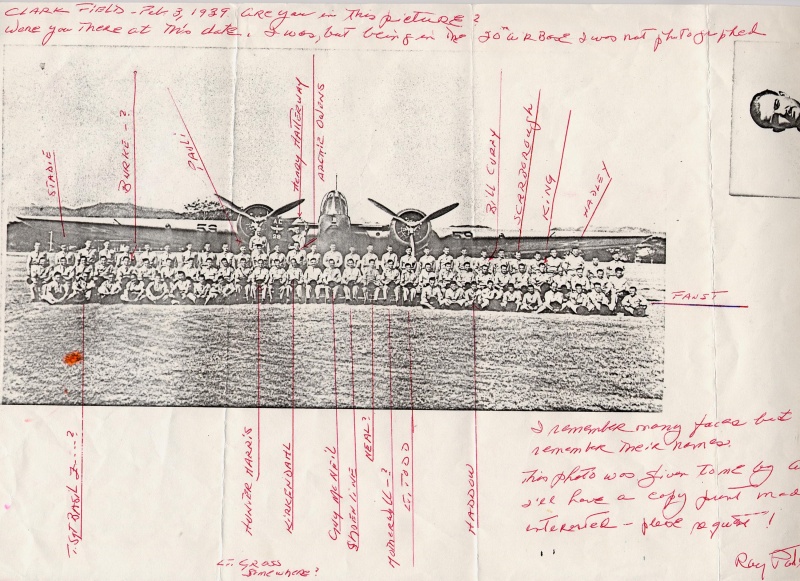 CLARK FIELD - Feb 3, 1939 Are you in this picture?
Were you there at this date. I was, but being in the 20th AR BASE I was not photographed
STADIE
BURKE - ?
PAULI
HENRY HATTERWAY
ARCTIC OWENS
BILL CURRY
SCARBOROUGH
KING
HADLEY
59
FAUST
T.SGT BASH ...?
HUNTER HARRIS
KIRKENDAHL
GUY McNEIL
NEAL?
MOTHERWELL - ?
LT. TODD
HADDOW
LT. GROSS
SOMEWHERE?
I remember many faces but
remember their names.
This photo was given to me by
I'll have a copy print mad
interested - please request!
Ray